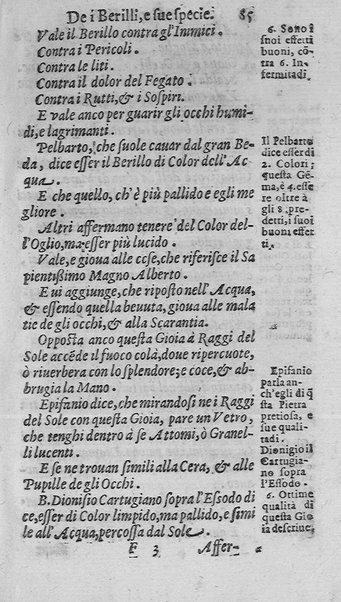 De i Berilli, e sue specie. 85
Vale il Berillo contra gl'Inimici.
Contra i Pericoli.
Contra le liti.
Contra il dolor del Fegato.
Contra i Rutti, & i Sospiri.
E vale anco per guarir gli occhi humi-
di, e lagrimanti.
Pelbarto, che suole cauar dal gran Be-
da, dice esser il Berillo di Color dell'Ac
qua.
E che quello, ch'è più pallido e egli me
gliore.
Altri affermano tenere del Color del-
l'Oglio, ma esser più lucido.
Vale, e gioua alle cose, che riferisce il Sa
pientißimo Magno Alberto.
E ui aggiunge, che riposto nell'Acqua,
& essendo quella beuuta, gioua alle mala
tie de gli occhi, & alla Scarantia.
Opposta anco questa Gioia à Raggi del
Sole accēde il fuoco colà, doue ripercuote,
ò riuerbera con lo splendore; e coce, & ab-
brugia la Mano.
Epifanio dice, che mirandosi ne i Raggi
del Sole con questa Gioia, pare un Vetro,
che tenghi dentro á se Attomi, ò Granel-
li lucenti.
E se ne trouan simili alla Cera, & alle
Pupille de gli Occhi.
B. Dionisio Cartugiano sopra l'Essodo di
ce, esser di Color limpido, ma pallido, e simi
le all'Acqua, percossa dal Sole.
F 3 Affer-
6. Sono i
suoi effetti
buoni, cõ
tra 6. In-
fermitadi.
Il Pelbarto
dice esser di
2. Colori;
questa Gē-
ma, è 4. esse
re oltre a
gli 8. pre-
detti, i suoi
buoni effet
ti.
Epifanio
parla an-
ch'egli di q̃
sta Pietra
pretiosa, e
sue quali-
tadi.
Dionigio il
Cartugia-
no sopra
l'Essodo.
6. Ottime
qualità di
questa Gio
ia descriue.